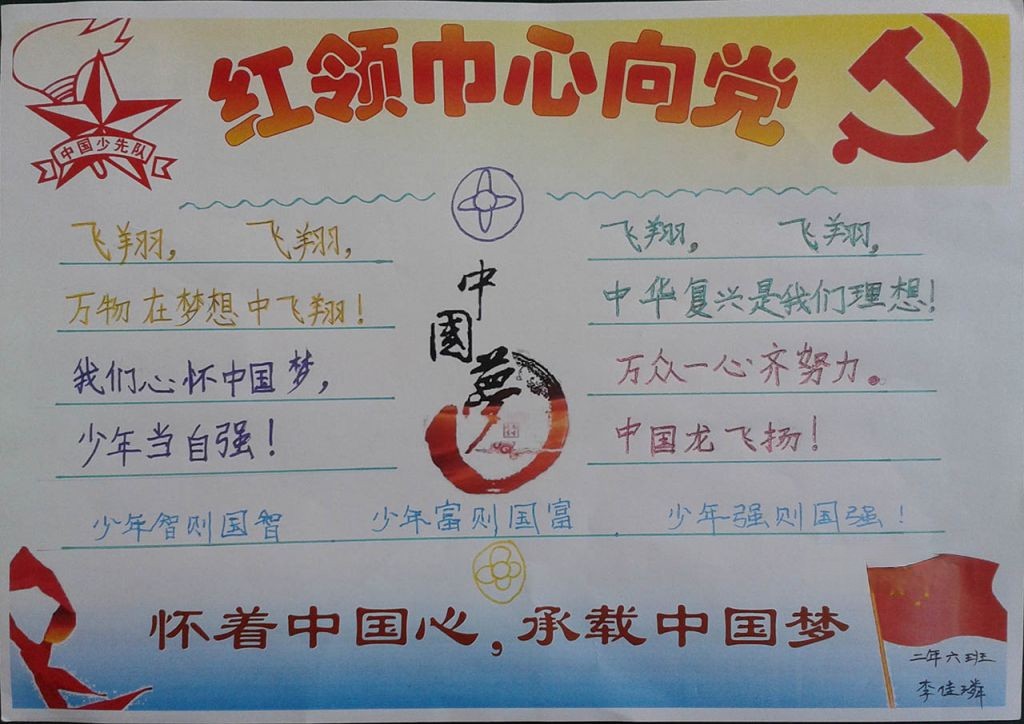 红领巾心向党
中国少先队
飞翔, 飞翔,
万物在梦想中飞翔!
我们心怀中国梦,
少年当自强!
中国梦
飞翔, 飞翔,
中华复兴是我们理想!
万众一心齐努力。
中国龙飞扬!
少年智则国智 少年富则国富 少年强则国强!
怀着中国心,承载中国梦
二年六班
李佳璘